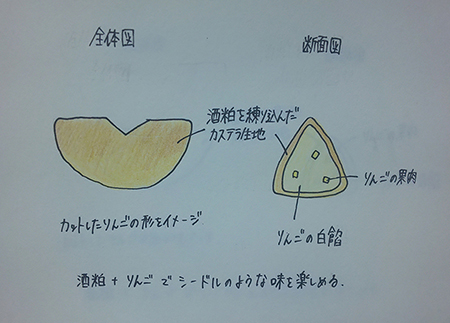 全体図
断面図
酒粕を練り込んだ
カステラ生地
りんごの果肉
カットしたりんごの形をイメージ
りんごの白餡
酒粕 + りんご で シードルのような味を楽しめる.